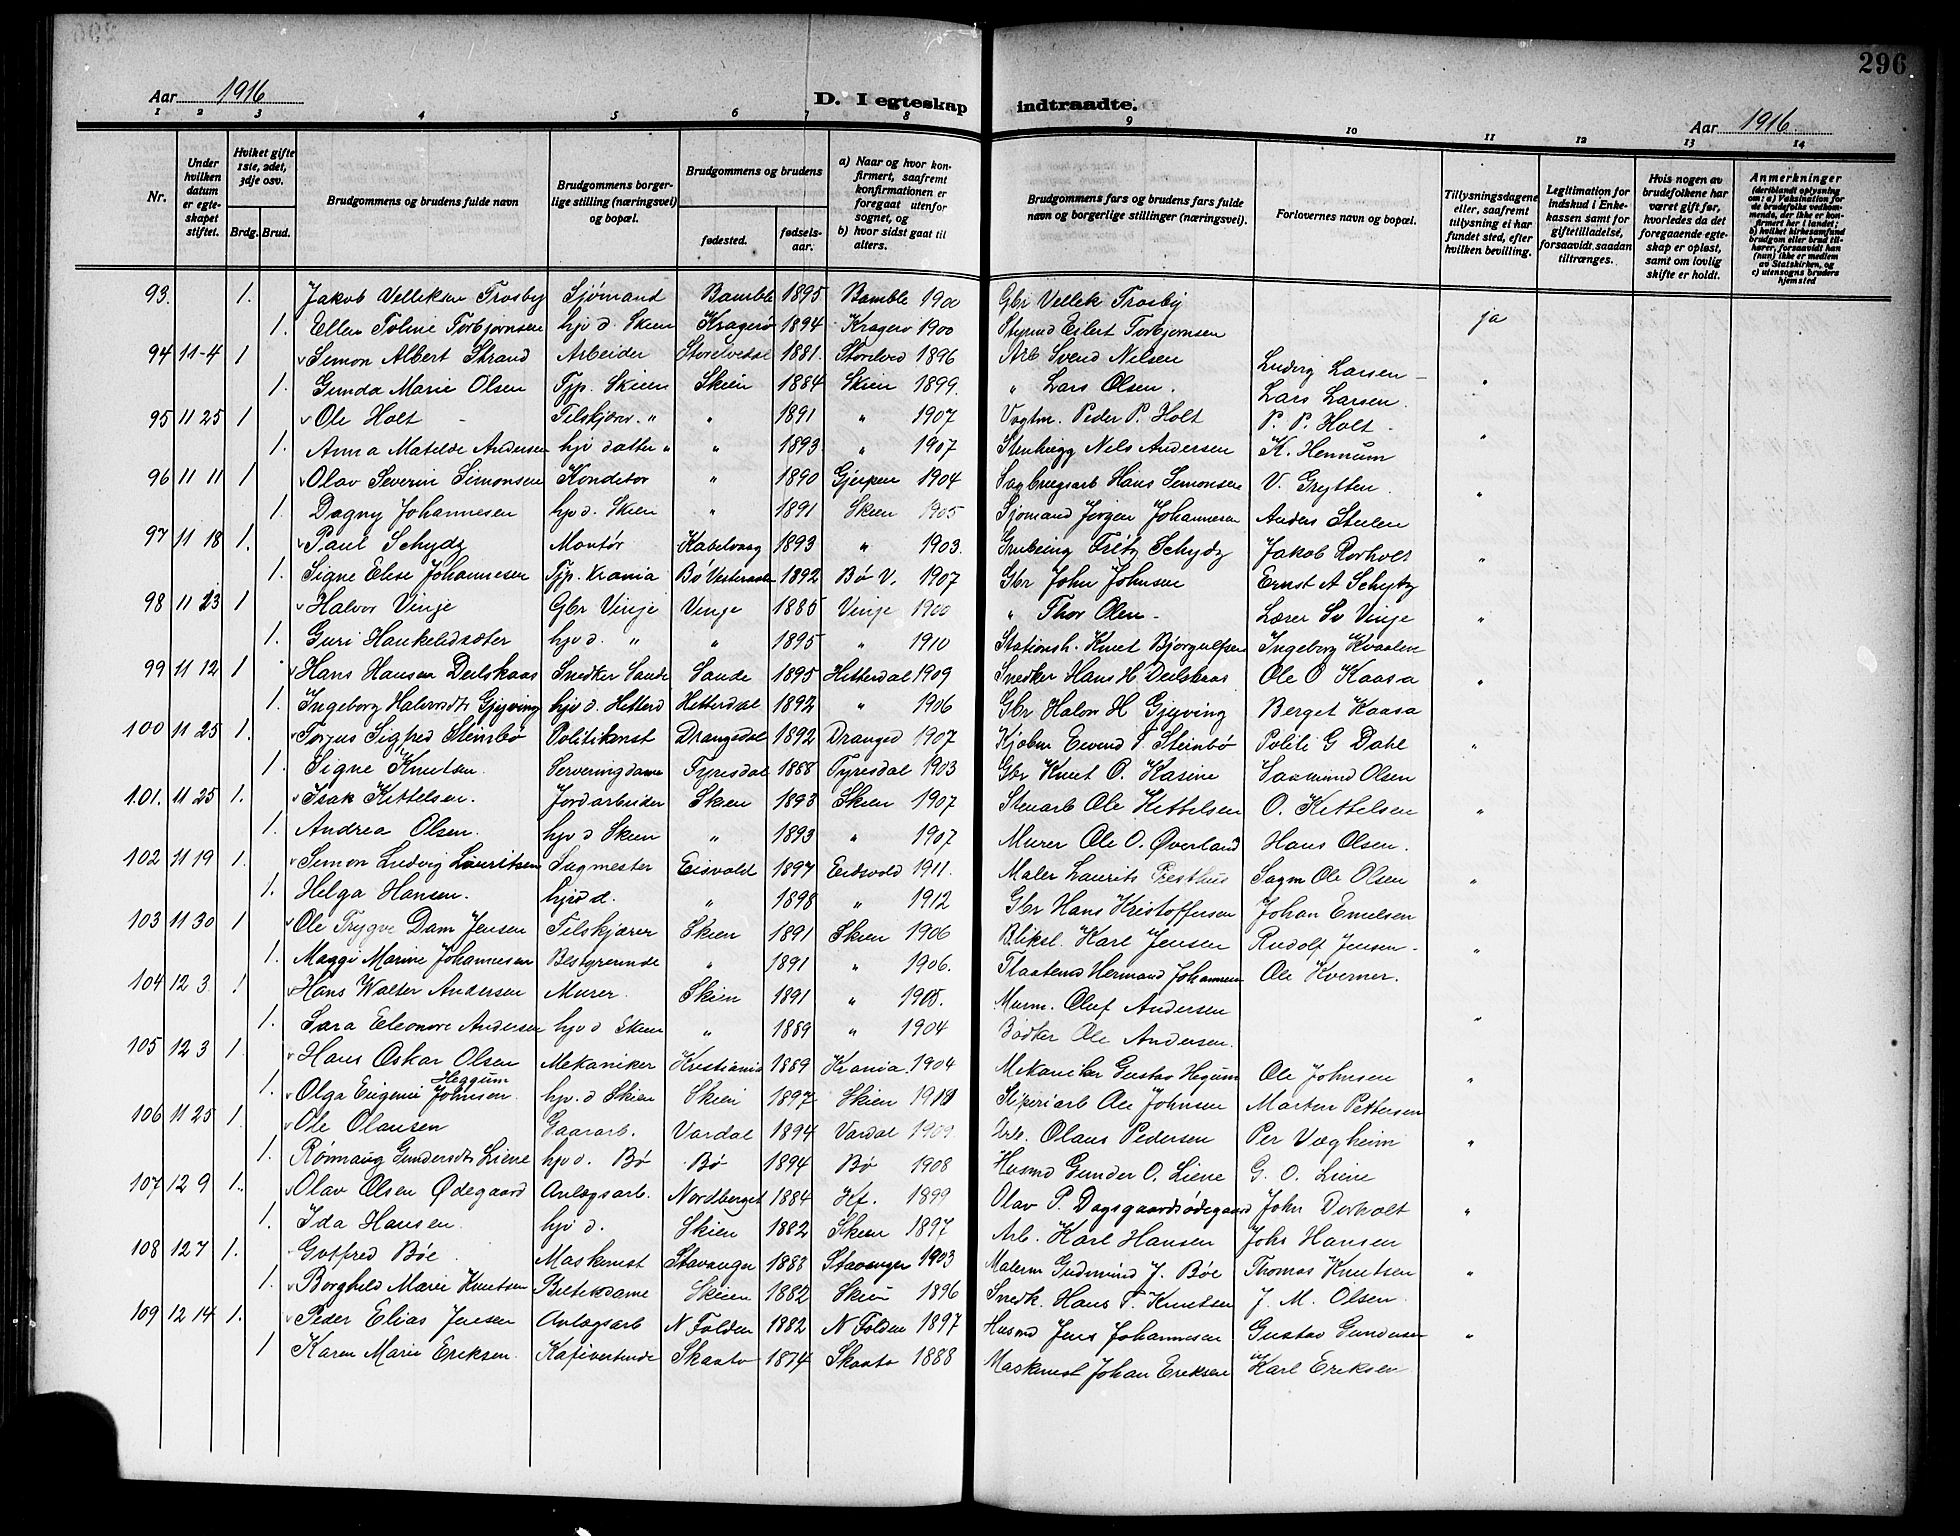 296
Aar 1916
D. I egteskap indtraadte.
Aar 1916.
1 2 3 4 5 6 7 8 9 10 11 12 13 14
Nr.
Under hvilken datum er egteskapet stiftet.
Hvilket gifte 1ste, 2det, 3dje osv.
Brdg. Brud.
Brudgommens og brudens fulde navn
Brudgommens borgerlige stilling (næringsvei) og bopæl.
Brudgommens og brudens
fødested.
fødselsaar.
a) Naar og hvor konfirmert, saafremt konfirmationen er foregaat utenfor sognet, og
b) hvor sidst gaat til alters.
Brudgommens fars og brudens fars fulde navn og borgerlige stillinger (næringsvei).
Forlovernes navn og bopæl.
Tillysningsdagene eller, saafremt tillysning ei har fundet sted, efter hvilken bevilling.
Legitimation for indskud i Enkekassen samt for giftetilladelse, forsaavidt saadan tiltrænges.
Hvis nogen av brudefolkene har været gift før, hvorledes da det foregaaende egteskap er opløst, samt om lovlig skifte er holdt.
Anmerkninger
(deriblandt oplysning om: a) Vaksination for de brudefolks vedkommende, der ikke er konfirmert her i landet; b) hvilket kirkesamfund brudgom eller brud tilhører, forsaavidt han (hun) ikke er medlem av Statskirken, og c) utensogns bruders hjemsted
93. 1. Jakob Velleksen Trosby Sjømand Bamble 1895 Bamble 1900 Gbr Vellek Trosby
1. Ellen Toline Torbjørnsen hjv d. Skien Kragerø 1894 Kragerø 1900 Styrmd Eilert Torbjørnsen ja
94 11-4 1 Simon Albert Strand Arbeider 1881. 1896 Arb Svend Nilsen Ludvig Larsen
1. Gunda Marie Olsen Tjp. Skien Skien 1884 Skien 1899. " Lars Olsen. Lars Larsen. "
95 11 25 1 Ole Holt Tilskjærer. " " 1891 " 1907 Vagtm. Peder P. Holt P. P. Holt
1. Anna Matilde Andersen hjv datter " " 1893 " 1907 Stenhugg Nils Andersen K. Hennum "
96 11 11 1 Olav Severin Simonsen Konditor " 1890 Gjerpen 1904 Sagbrugsarb Hans Simonsen V. Grytten.
1. Dagny Johannesen hjv d. Skien " 1891 Skien 1905 Sjømand Jørgen Johannesen Anders Stulen "
97 11 18 1. Paul Schydz Montør Kabelvaag 1893 " 1903. Grubeing Fritz Schydz Jakob Rorholt
1. Signe Elise Johannesen Tjp. Krania Bø Vesteraalen 1892 Bø V. 1907 Gbr John Johnsen Ernst A Schytz "
98 11 23 1 Halvor Vinje Gbr Vinje Vinje 1885 Vinje 1900 " Thor Olen Lærer Sv Vinje
1. Guri Haukelidsæter hjv d. " " 1895 " 1910 Stationsh. Knut Bjørgulfsen Ingeborg Kvaalen "
99 11 12 1 Hans Hansen Deilskaas Snedker Sande Sande 1895 Hitterdal 1909 Snedker Hans H Deilskaas Ole O Kaasa
1. Ingeborg Halvorsdtr Gjyving hjv d. Hitterd Hitterdal 1892 " 1906 Gbr Halvor H Gjyving Berget Kaasa "
100 11 25 1. Torjus Sigfred Steinbø Politikonst Drangedal 1892 Dranged 1907 Kjøbm Eivind T. Steinbø Politi G Dahl
1. Signe Knutsen. Serveringdame Fyresdal 1888 Fyresdal 1903 Gbr Knut O. Kasine Saamund Olsen "
101. 11 25 1. Isak Kittelsen. Jordarbeider Skien 1893 Skien 1907 Stenarb Ole Kittelsen O. Kittelsen
1. Andrea Olsen. hjv d Skien " 1893 " 1907 Murer Ole O. Øverland Hans Olsen. "
102 11 19 1. Simon Ludvig Lauritsen Sagmester Eisvold 1897 Eidsvold 1911. Maler Laurits Presthus Sagm Ole Olsen
1. Helga Hansen. hjv d. " 1898 " 1912 Gbr Hans Kristoffersen Johan Emelsen "
103 11 30 1 Ole Trygve Dam Jensen Tilskjærer Skien 1891 Skien 1906 Bliksl. Karl Jensen Rudolf Jensen
1. Maggi Marine Johannesen Bestyrerinde " 1891 " 1906. Flaatemd Hermand Johannesen Ole Kverner. "
104 12 3 1 Hans Walter Andersen Murer. Skien 1891 " 1905. Murm. Oluf Andersen
1. Sara Eleonore Andersen hjv d Skien " 1889 " 1904 Bødker Ole Andersen. "
105 12 3 1. Hans Oskar Olsen Heggum Mekaniker Kristiania 1889 Krania. 1904 Mekaniker Gustav Hegum Ole Johnsen
1. Olga Eugenie Johnsen. hjv. d Skien Skien 1897 Skien 1911 Sliperiarb Ole Johnsen Marten Pettersen "
106 11 25 1. Ole Olausen Gaararb. Vardal 1894 Vardal 1909. Arb. Olaus Pedersen Per Vægheim
1. Rønnaug Gundersdtr Liene hjv d. Bø Bø 1894 Bø 1908 Husmd Gunder O. Liene G. O. Liene "
107 12 9 1. Olav Olsen Ødegaard Anlægsarb. Nordberget 1884 Hf. 1899 Olav P. Dagsgaardsødegaard John Dorholt
1. Ida Hansen. hjv d. Skien 1882 Skien 1897 Arb. Karl Hansen Johs Hansen "
108 12 7 1. Gotfred Bøe Maskinist Stavanger 1888 Stavanger 1903 Malerm Gudmund J. Bøe Thomas Knutsen
1. Borghild Marie Knutsen Butiksdame Skien 1882 Skien 1896 Snedk. Hans T. Knutsen J. M. Olsen. "
109 12 14 1. Peder Elias Jensen Anlægsarb N Folden 1882 N Folden 1897 Husmd Jens Johannesen Gustav Gundersen
1 Karen Marie Eriksen. Kafévertinde Skaatø 1874 Skaatø 1888 Maskinist Johan Eriksen Karl Eriksen "